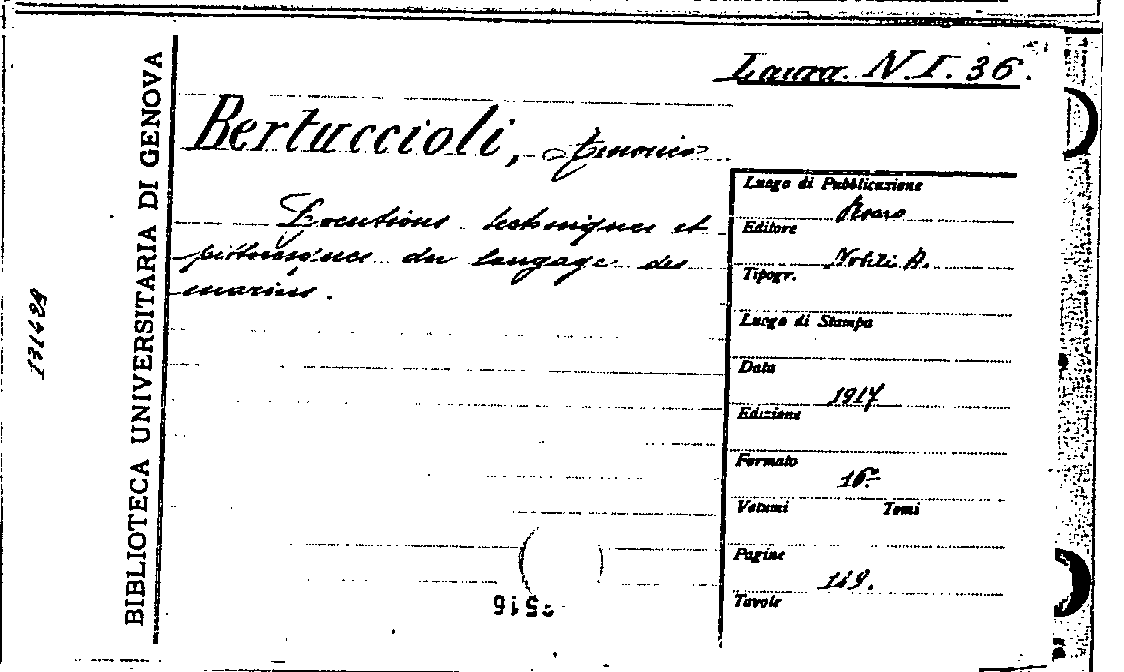 Laura. N. I. 36.
Bertuccioli,
Locutions techniques et
pittoresques du langage des
marins.
BIBLIOTECA UNIVERSITARIA DI GENOVA
Luogo di Pubblicazione
Editore
Nobili A.
Tipogr.
Luogo di Stampa
Data
1917
Edizione
Formato
16º
Volumi Tomi
Pagine
149.
Tavole